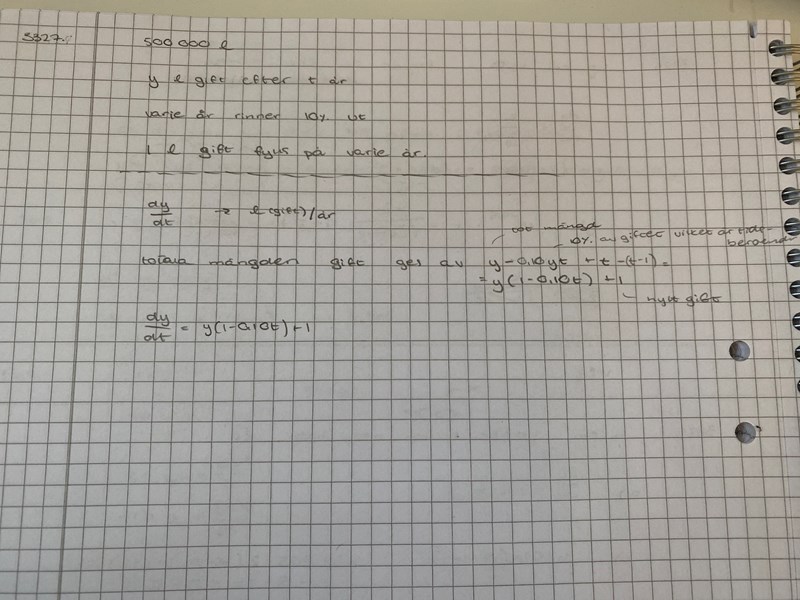 5327.
500 000 l
y l gift efter t år
varje år rinner 10% ut
1 l gift fylls på varje år.
dy/dt → l (gift)/år
tot mängd
10% av giftet vilket är tids-
beroende
totala mängden gift ges av y - 0,10yt + t - (t-1) =
= y(1-0,10t) + 1
nytt gift
dy/dt = y(1-0,10t) + 1